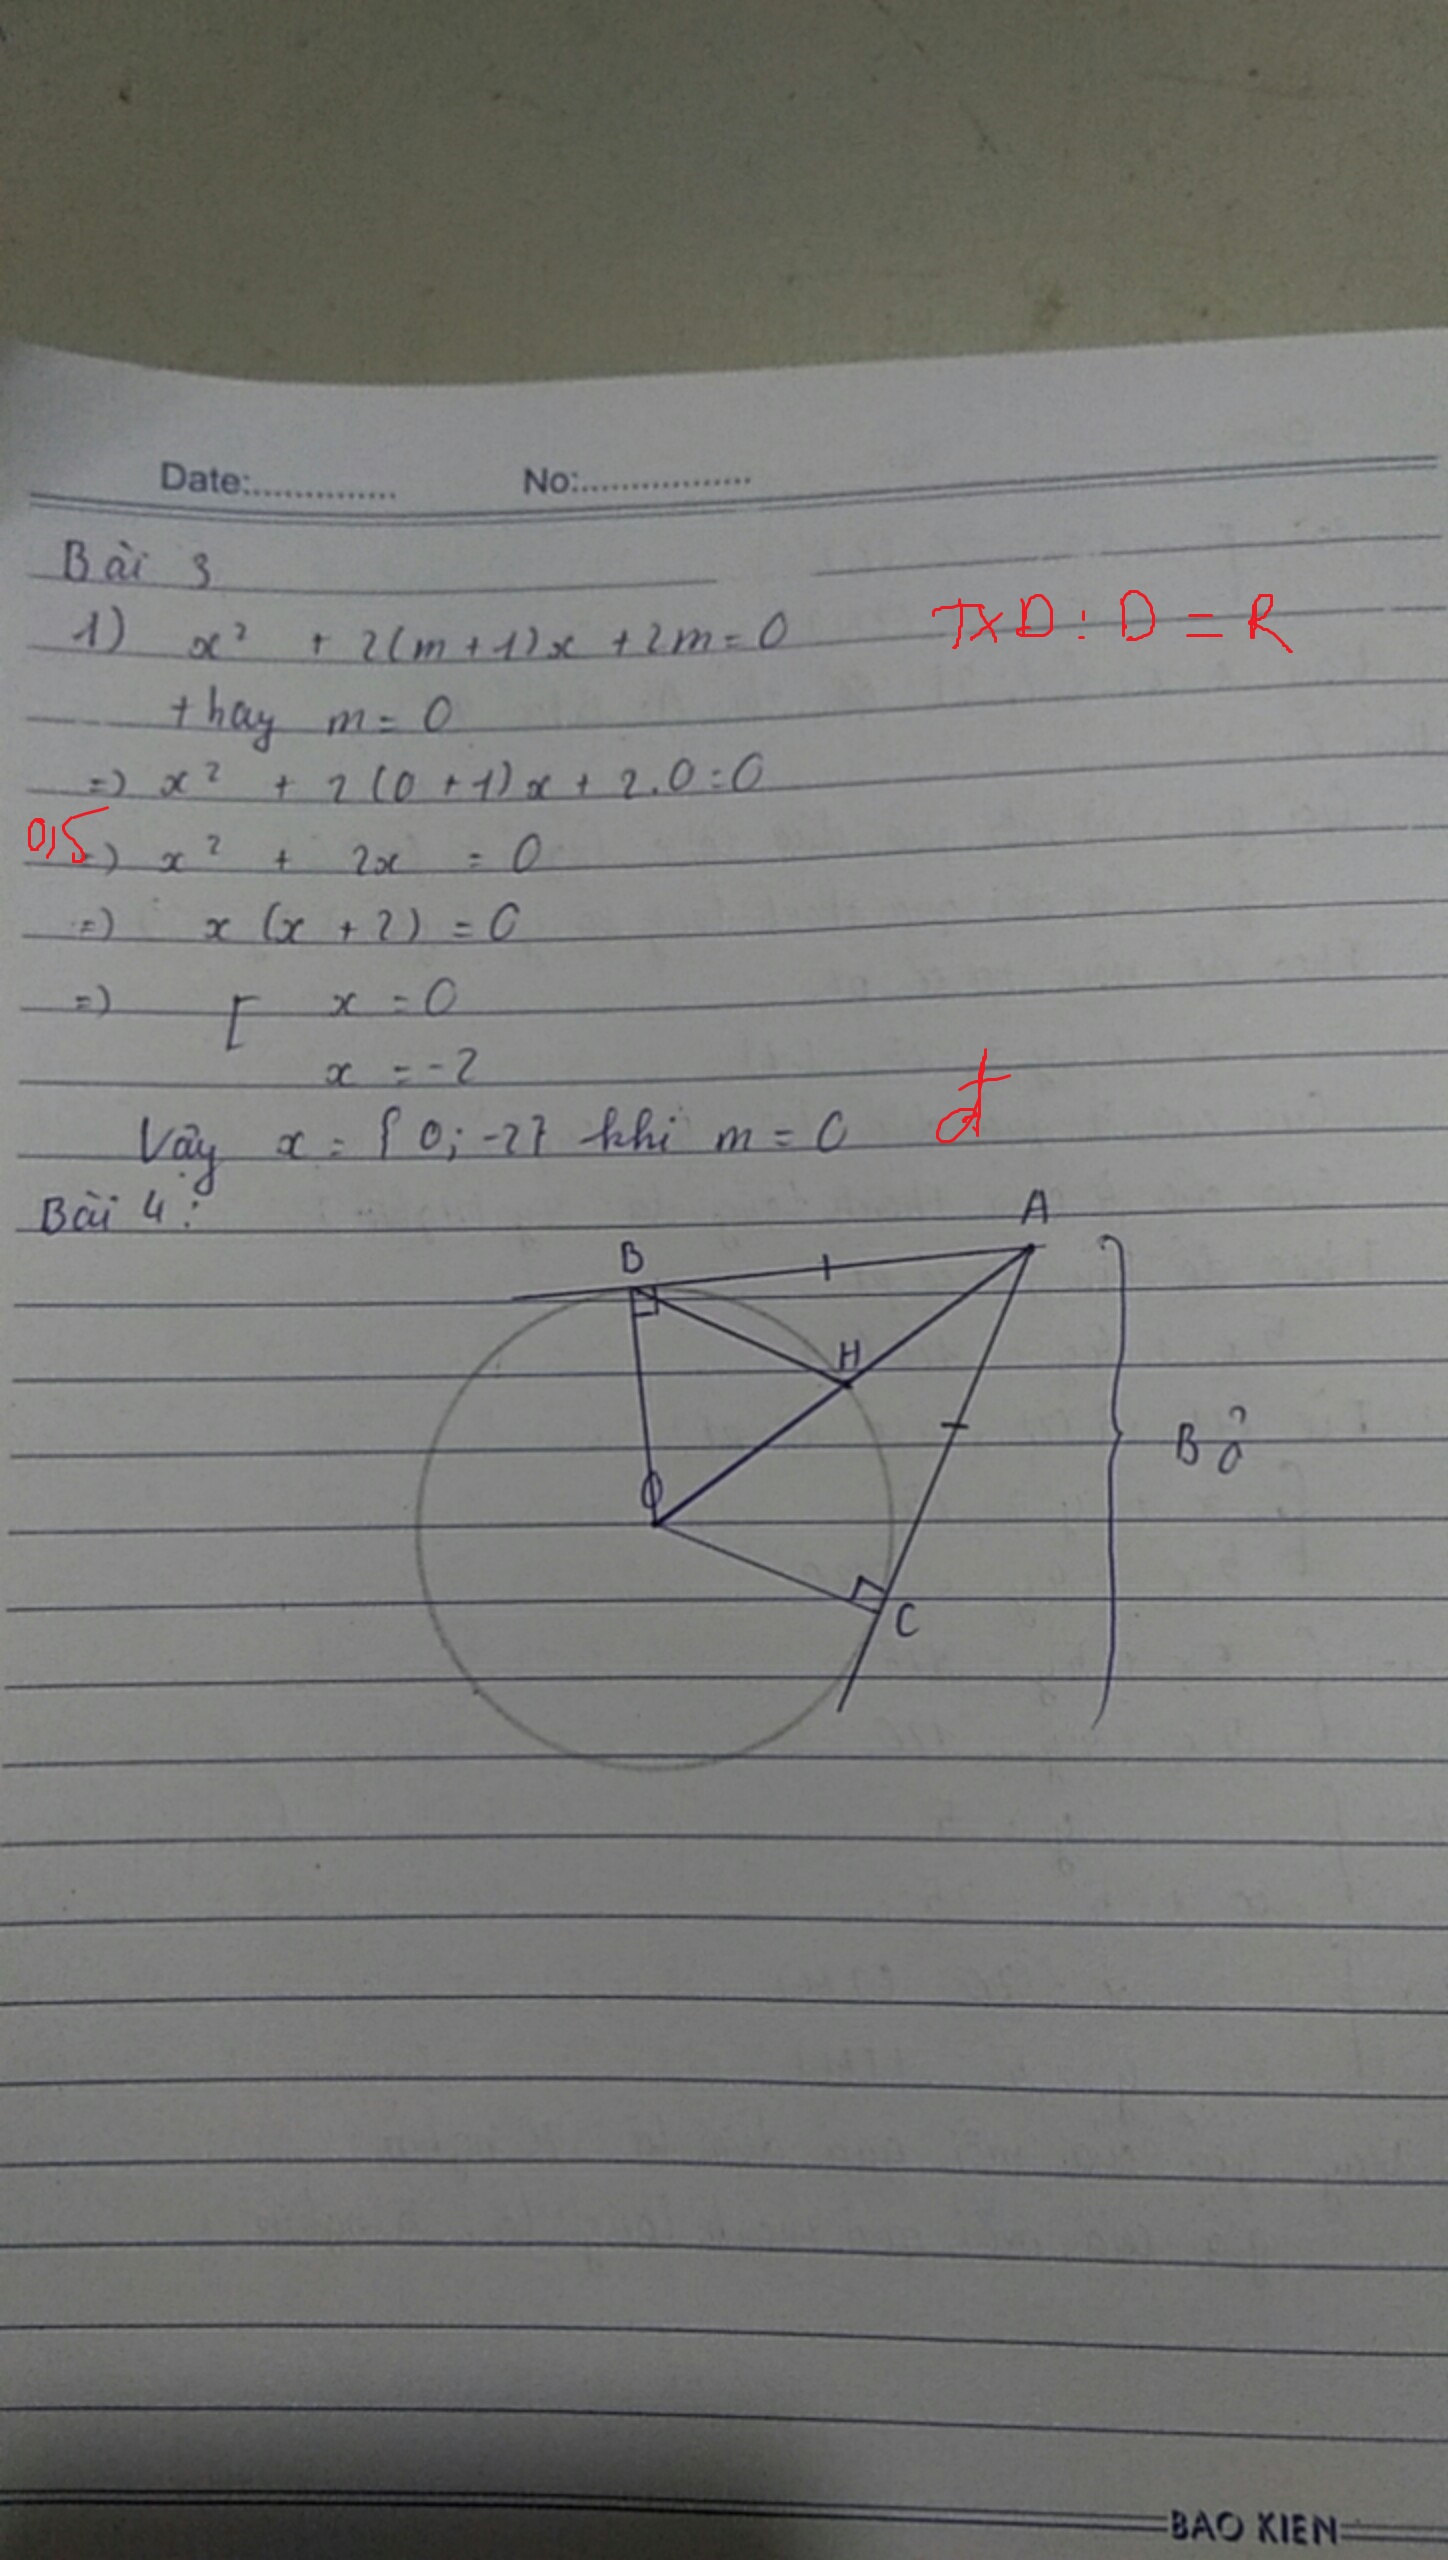 Date:............... No:..................
Bài 3
1) x² + 2(m+1)x + 2m = 0 TXD : D = R
thay m = 0
=) x² + 2(0+1)x + 2.0 = 0
0,5 =) x² + 2x = 0
=) x(x+2) = 0
=) [ x = 0
x = -2
Vậy x = {0; -2} khi m = 0 đ
Bài 4:
A
B
H
Bỏ
O
C
BAO KIEN